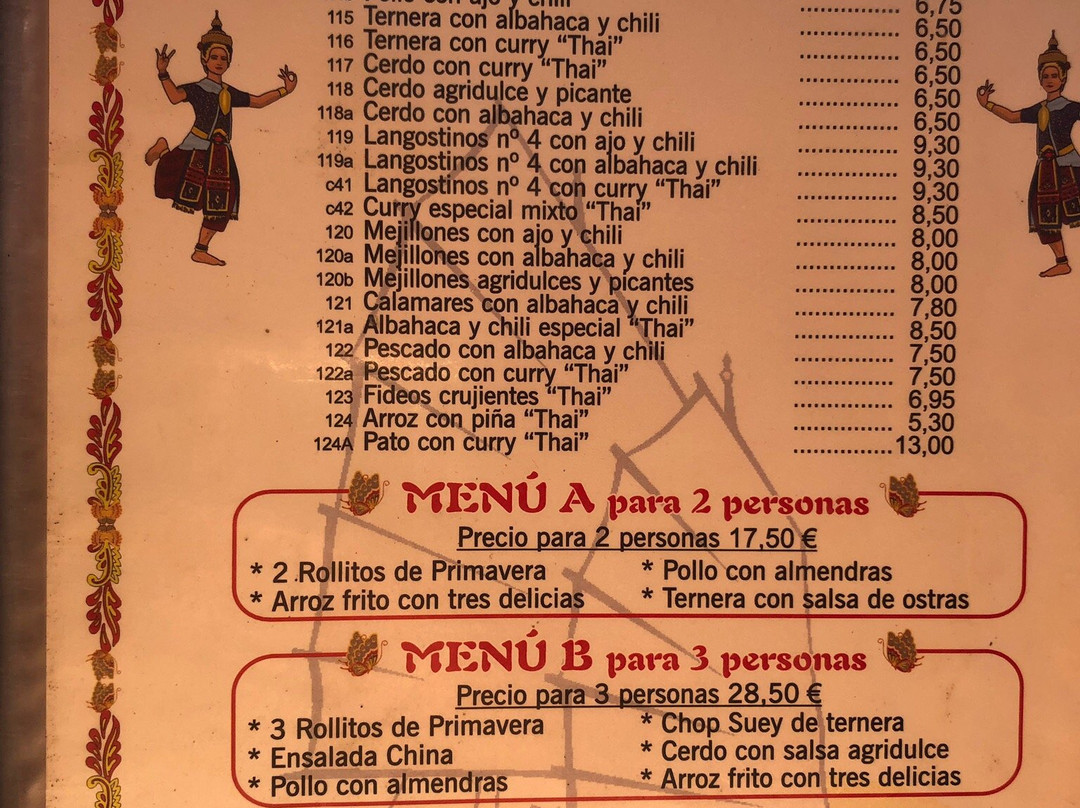 Pollo con ajo y chili ............... 6,75
115 Ternera con albahaca y chili ............... 6,50
116 Ternera con curry “Thai” ............... 6,50
117 Cerdo con curry “Thai” ............... 6,50
118 Cerdo agridulce y picante ............... 6,50
118a Cerdo con albahaca y chili ............... 6,50
119 Langostinos nº 4 con ajo y chili ............... 9,30
119a Langostinos nº 4 con albahaca y chili ............... 9,30
c41 Langostinos nº 4 con curry “Thai” ............... 9,30
c42 Curry especial mixto “Thai” ............... 8,50
120 Mejillones con ajo y chili ............... 8,00
120a Mejillones con albahaca y chili ............... 8,00
120b Mejillones agridulces y picantes ............... 8,00
121 Calamares con albahaca y chili ............... 7,80
121a Albahaca y chili especial “Thai” ............... 8,50
122 Pescado con albahaca y chili ............... 7,50
122a Pescado con curry “Thai” ............... 7,50
123 Fideos crujientes “Thai” ............... 6,95
124 Arroz con piña “Thai” ............... 5,30
124A Pato con curry “Thai” ............... 13,00
MENÚ A para 2 personas
Precio para 2 personas 17,50 €
* 2 .Rollitos de Primavera * Pollo con almendras
* Arroz frito con tres delicias * Ternera con salsa de ostras
MENÚ B para 3 personas
Precio para 3 personas 28,50 €
* 3 Rollitos de Primavera * Chop Suey de ternera
* Ensalada China * Cerdo con salsa agridulce
* Pollo con almendras * Arroz frito con tres delicias